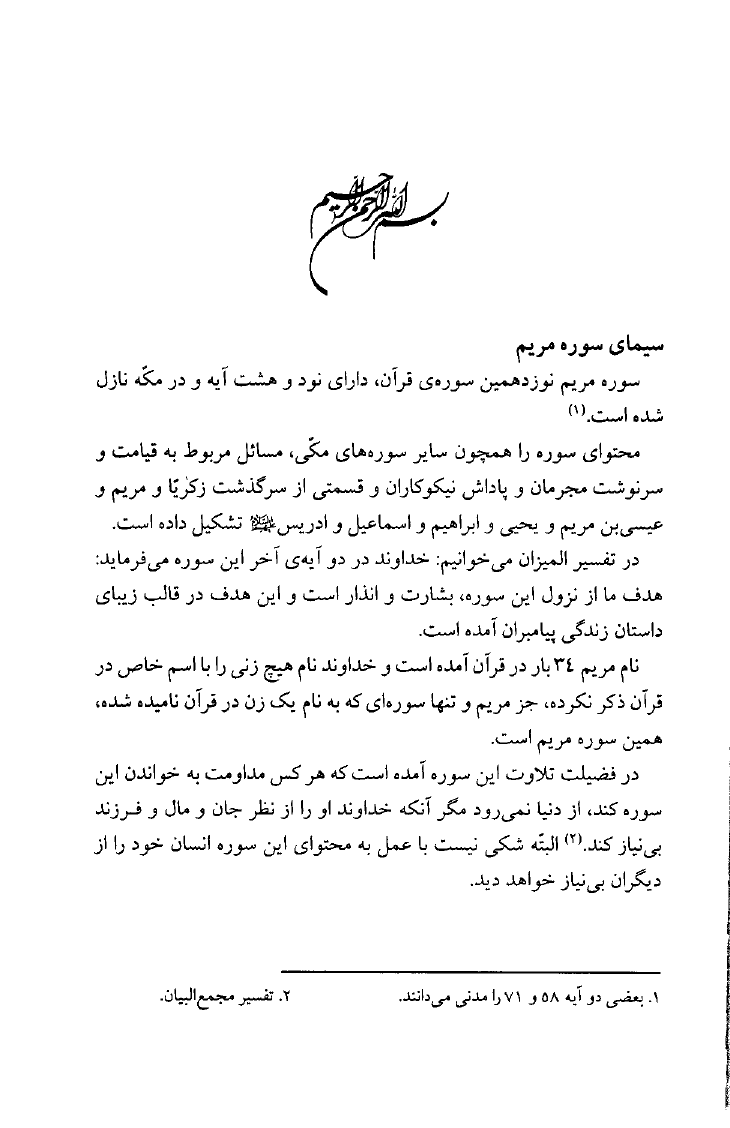 بسم الله الرحمن الرحیم
سیمای سوره مریم
سوره مریم نوزدهمین سوره‌ی قرآن، دارای نود و هشت آیه و در مکّه نازل
شده است.(۱)
محتوای سوره را همچون سایر سوره‌های مکّی، مسائل مربوط به قیامت و
سرنوشت مجرمان و پاداش نیکوکاران و قسمتی از سرگذشت زکریّا و مریم و
عیسی‌بن مریم و یحیی و ابراهیم و اسماعیل و ادریس تشکیل داده است.
در تفسیر المیزان می‌خوانیم: خداوند در دو آیه‌ی آخر این سوره می‌فرماید:
هدف ما از نزول این سوره، بشارت و انذار است و این هدف در قالب زیبای
داستان زندگی پیامبران آمده است.
نام مریم ۳٤ بار در قرآن آمده است و خداوند نام هیچ زنی را با اسم خاص در
قرآن ذکر نکرده، جز مریم و تنها سوره‌ای که به نام یک زن در قرآن نامیده شده،
همین سوره مریم است.
در فضیلت تلاوت این سوره آمده است که هر کس مداومت به خواندن این
سوره کند، از دنیا نمی‌رود مگر آنکه خداوند او را از نظر جان و مال و فرزند
بی‌نیاز کند.(۲) البتّه شکی نیست با عمل به محتوای این سوره انسان خود را از
دیگران بی‌نیاز خواهد دید.
۱. بعضی دو آیه ۵۸ و ۷۱ را مدنی می‌دانند. ۲. تفسیر مجمع‌البیان.